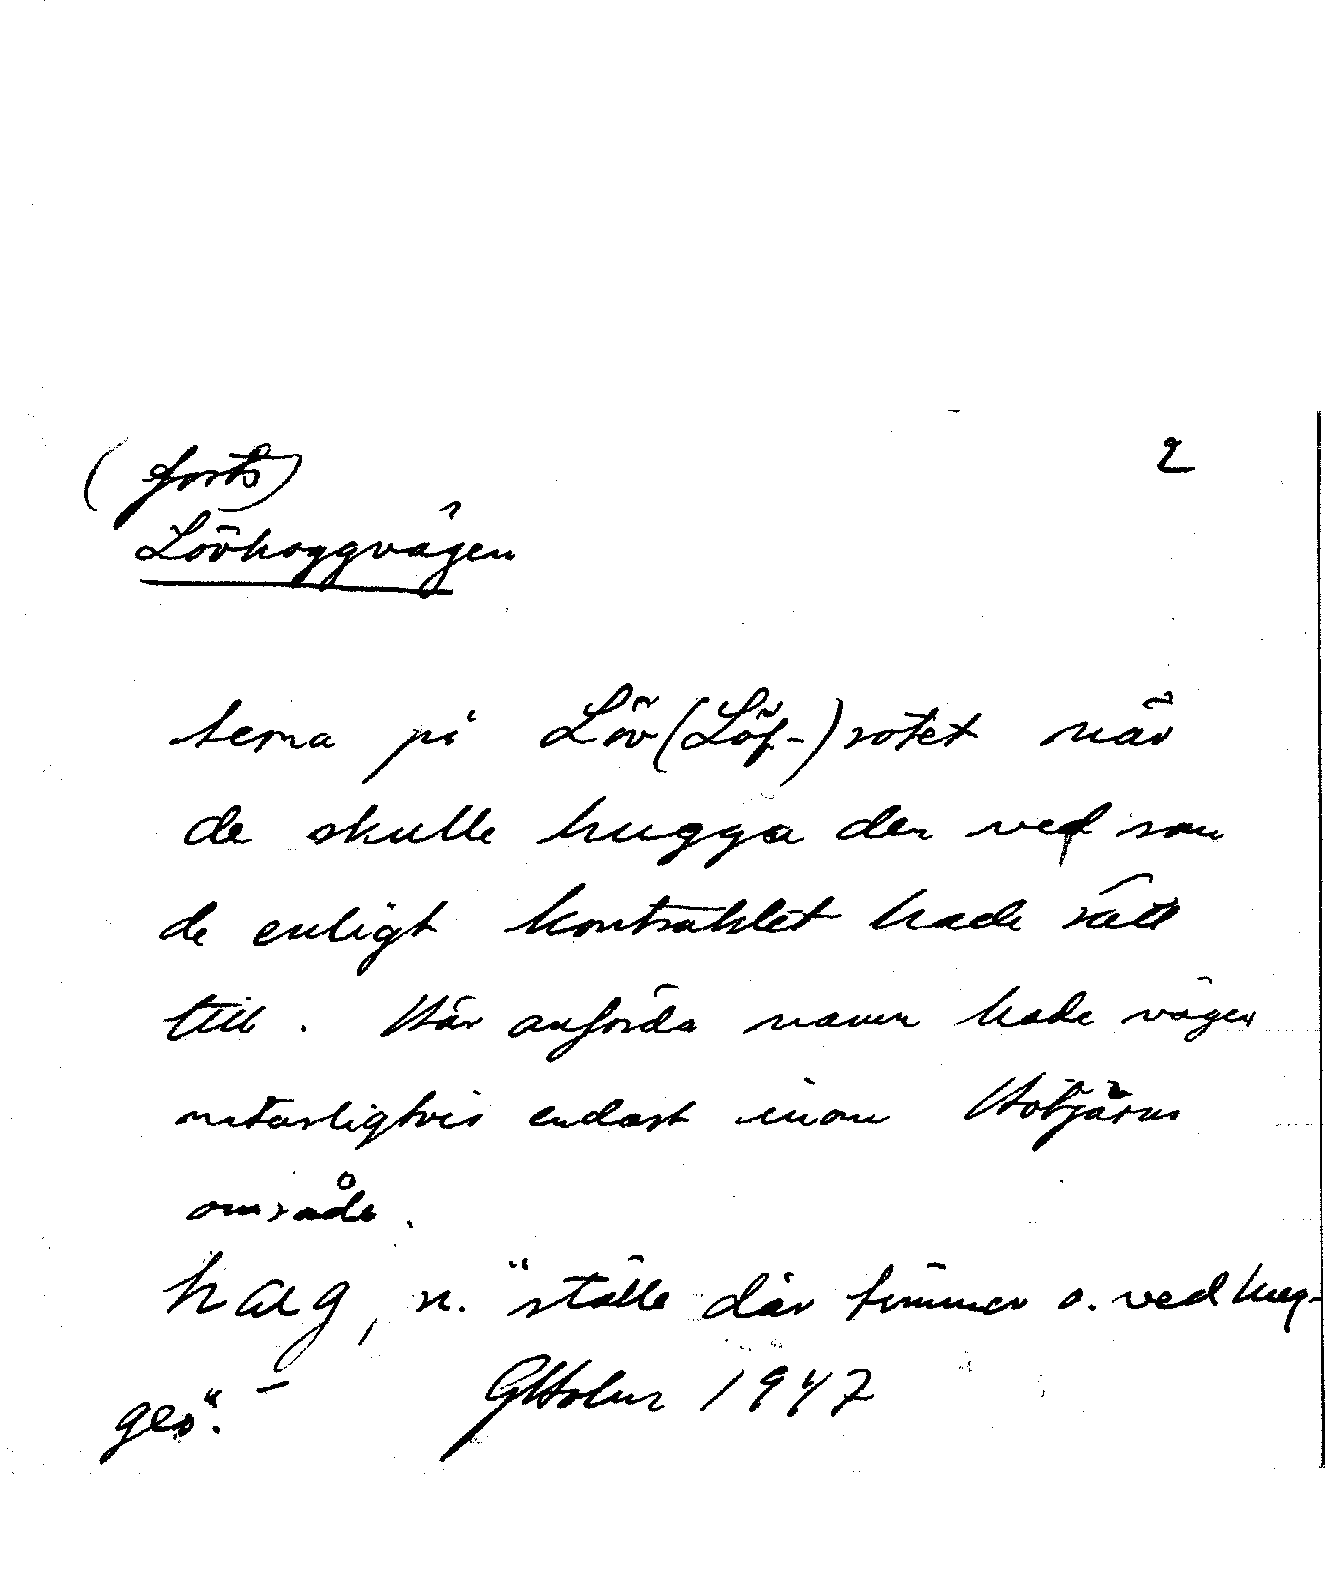 (forts) 2
Lövhoggvägen
terna på Löv(Löf-)rotet när
de skulle hugga den ved som
de enligt kontraktet hade rätt
till. Här anförda namn hade vägen
naturligtvis endast inom
område.
hag, n. "ställe där timmer o. ved hug-
ges". GHolm 1947